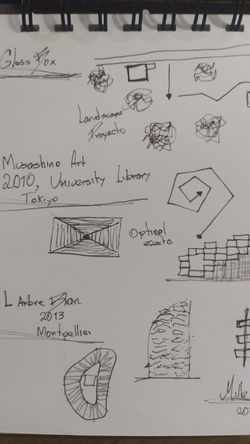 Glass Box
Landscape
Proyecto
Musashino Art
2010, University Library
Tokiyo
Optical
L Arbre Blan
2013
Montpellier
Mille
20